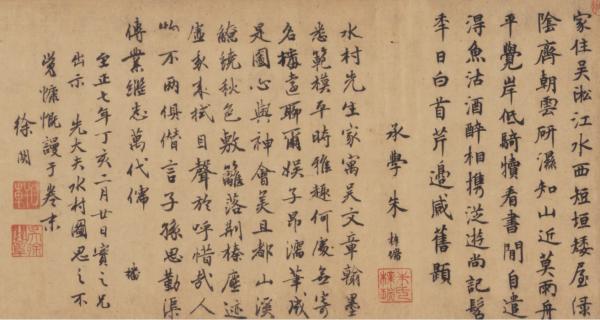 家住吴淞江水西短垣矮屋緑
陰齊朝雲研濕知山近莫雨舟
平覺岸低騎犢看書閒自遣
得魚沽酒醉相攜從遊尚記髫
年日白首芹邊感舊題
承學朱梓瑞
水村先生家寓吴文章翰墨
悉範模平時雅趣何處寄
名播遠聊爾娱子昂濡筆成
是圖心與神會美且都山溪
繞秋色敷籬落荆榛塵迹
虚我來拭目聲於呼惜哉人
此不兩俱借言子孫思勤渠
傳業繼志萬代儒
至正七年丁亥二月廿日寳之兄
出示 先大夫水村圖思之不
覺慷慨謾于卷末
徐関